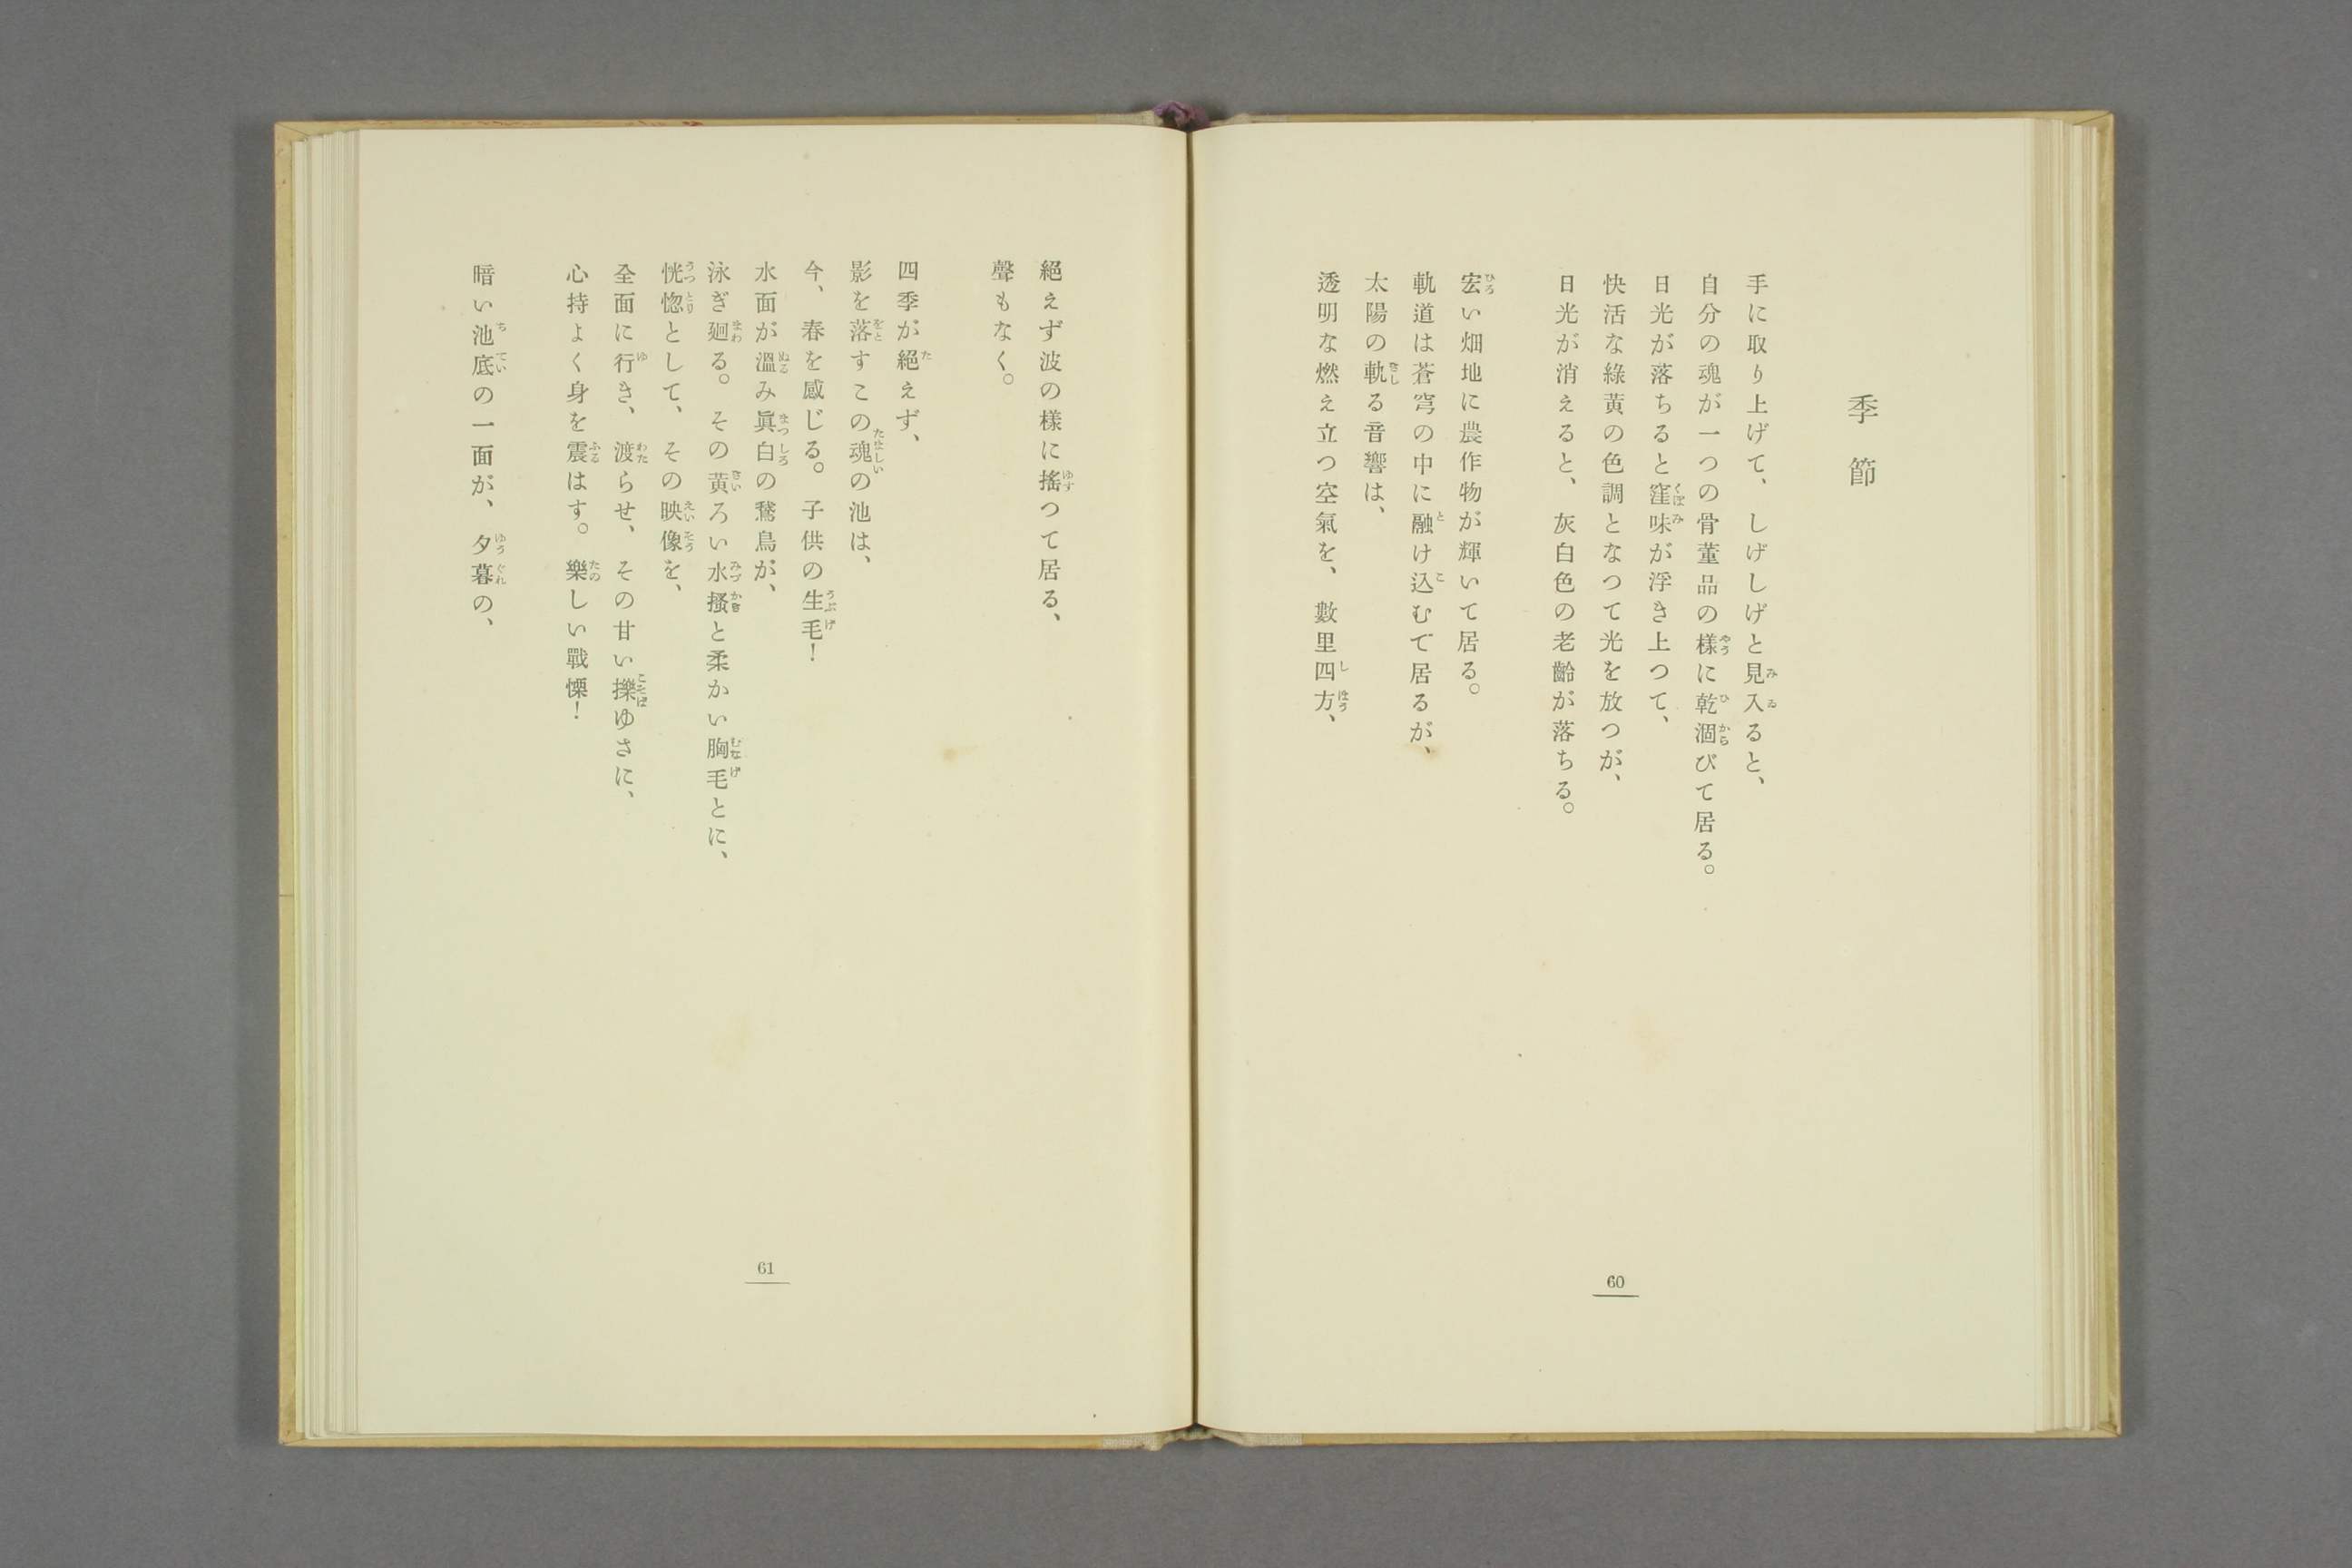 季節
手に取り上げて、しげしげと見入ると、
自分の魂が一つの骨董品の樣に乾涸びて居る。
日光が落ちると窪味が浮き上つて、
快活な綠黄の色調となつて光を放つが、
日光が消えると、灰白色の老齡が落ちる。
宏い畑地に農作物が輝いて居る。
軌道は蒼穹の中に融け込むで居るが、
太陽の軌る音響は、
透明な燃え立つ空氣を、數里四方、
60
絕えず波の樣に搖つて居る、
聲もなく。
四季が絕えず、
影を落すこの魂の池は、
今、春を感じる。子供の生毛！
水面が溫み眞白の鵞鳥が、
泳ぎ廻る。その黄ろい水搔と柔かい胸毛とに、
恍惚として、その映像を、
全面に行き、渡らせ、その甘い擽ゆさに、
心持よく身を震はす。樂しい戰慄！
暗い池底の一面が、夕暮の、
61